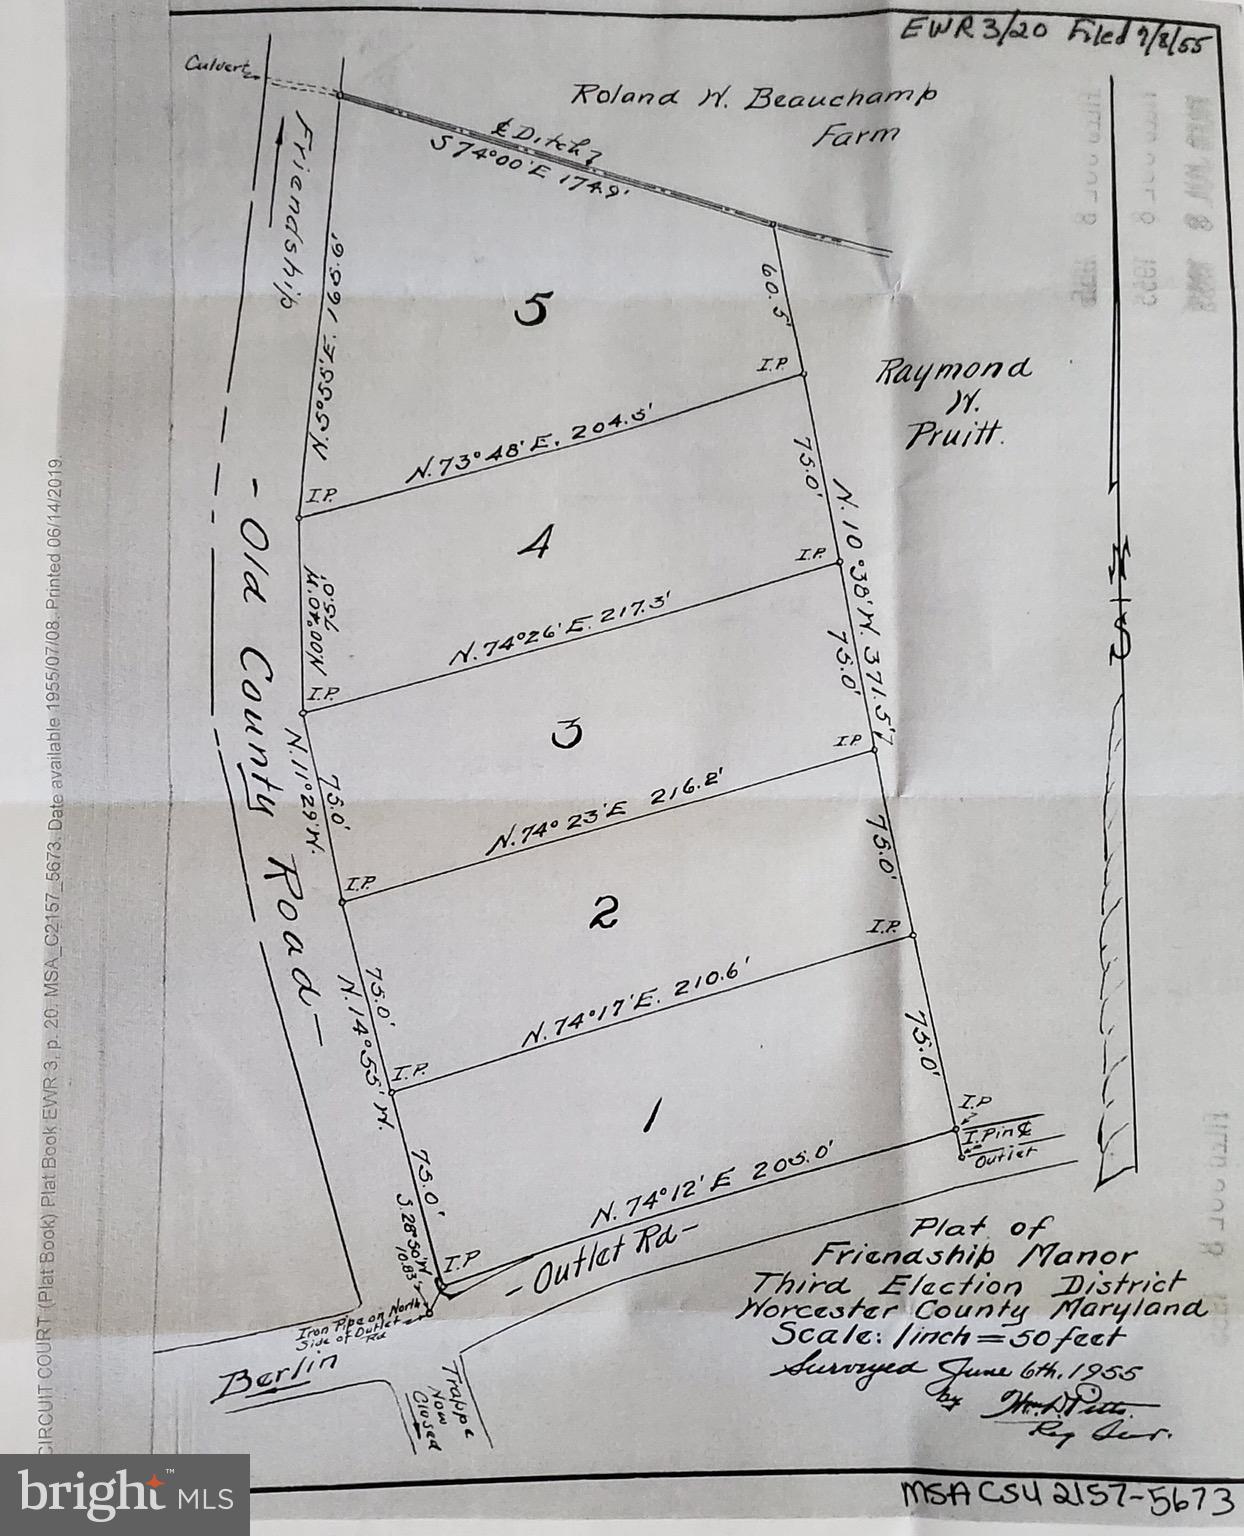 EWR 3/20 Filed 7/8/55
Culvert
Roland W. Beauchamp
Farm
Friendship
℄ Ditch
S 74°00' E 174.9'
N. 5°55' E. 165.6'
60.5'
5
I.P.
Raymond
W.
Pruitt.
N. 73°48' E. 204.5'
I.P.
75.0'
4
N. 10°38' W. 371.5'
I.P.
75.0'
N. 74°26' E. 217.3'
I.P.
75.0'
- Old County Road -
N. 11°29' W.
75.0'
3
I.P.
N. 74°23' E 216.2'
I.P.
75.0'
2
I.P.
N. 74°17' E. 210.6'
I.P.
75.0'
N. 14°55' W.
75.0'
1
75.0'
I.P
I. Pin ℄
Outlet
N. 74°12' E 205.0'
I.P
S. 28°50' W
10.83'
- Outlet Rd -
Iron Pipe on North
Side of Outlet
Rd
Berlin
Trappe
Now
Closed
Plat of
Friendship Manor
Third Election District
Worcester County Maryland
Scale: 1 inch = 50 feet
Surveyed June 6th, 1955
by Wm. D. Pitts.
Reg Sur.
MSA CSU 2157-5673
CIRCUIT COURT (Plat Book) Plat Book EWR 3, p. 20, MSA_C2157_5673. Date available 1955/07/08. Printed 06/14/2019.
bright™ MLS